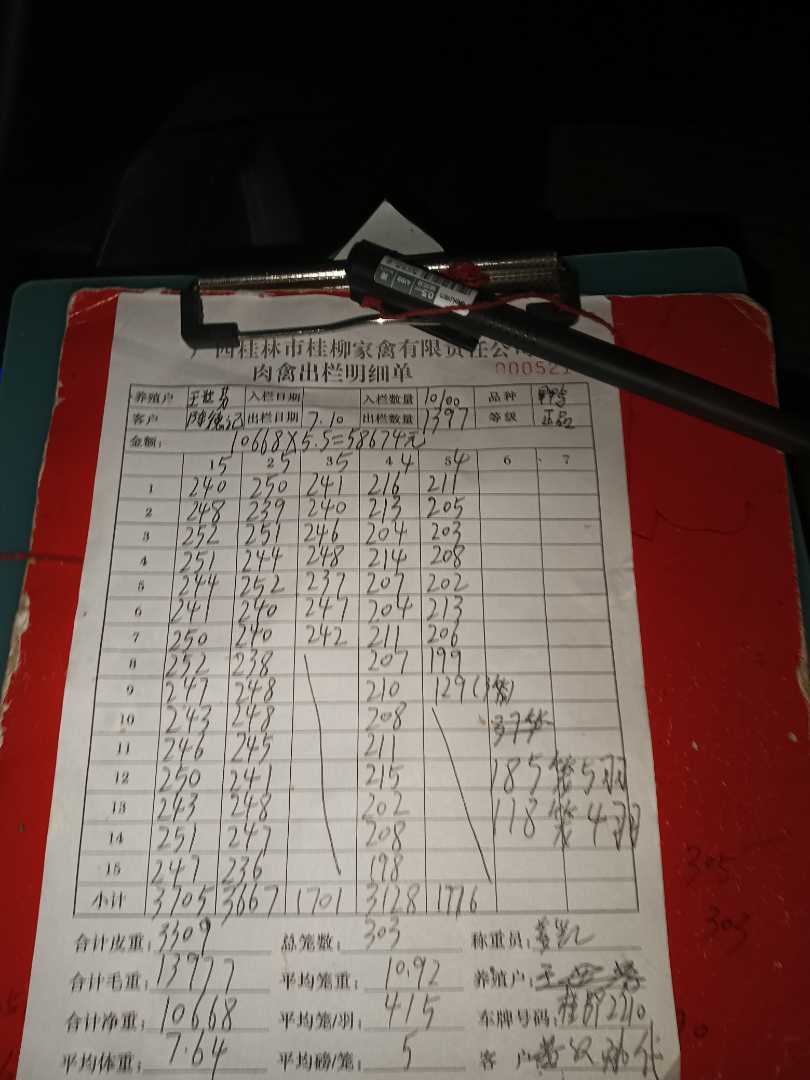 广西桂林市桂柳家禽有限责任公司
肉禽出栏明细单 000521
养殖户 入栏日期 入栏数量 10100 品种
客户 陈德记 出栏日期 7.10 出栏数量 1397 等级 正品
金额: 10668×5.5=58674元
1 5 2 5 3 5 4 4 5 4 6 7
1 240 250 241 216 211
2 248 239 240 213 205
3 252 251 246 204 203
4 251 244 248 214 208
5 244 252 237 207 202
6 241 240 247 204 213
7 250 240 242 211 206
8 252 238 207 199
9 247 248 210 129(3笼)
10 243 248 208
11 246 245 211
12 250 241 215 185笼5羽
13 243 248 202 118笼4羽
14 251 247 208
15 247 236 198
小计 3705 3667 1701 3128 1776
合计皮重: 3309 总笼数: 303 称重员:
合计毛重: 13977 平均笼重: 10.92 养殖户:
合计净重: 10668 平均笼/羽: 4.15 车牌号码:
平均体重: 7.64 平均磅/笼: 5 客 户
305
303